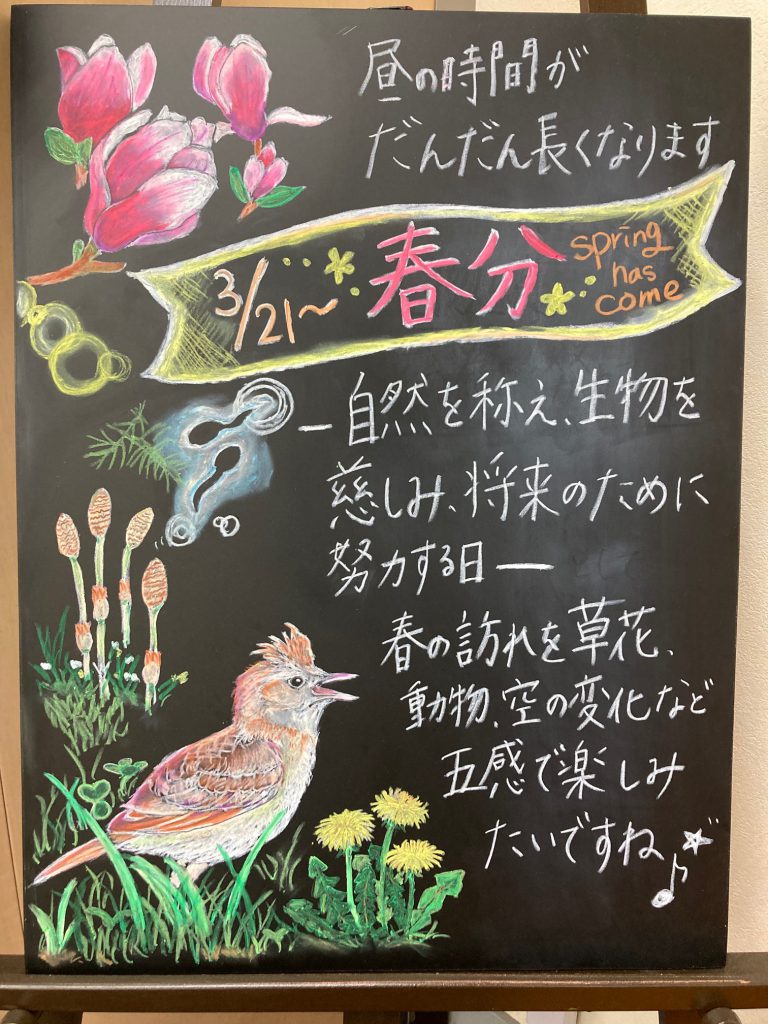 昼の時間が
だんだん長くなります
3/21～ 春分 spring
has
come
―自然を称え、生物を
慈しみ、将来のために
努力する日―
春の訪れを草花、
動物、空の変化など
五感で楽しみ
たいですね♪